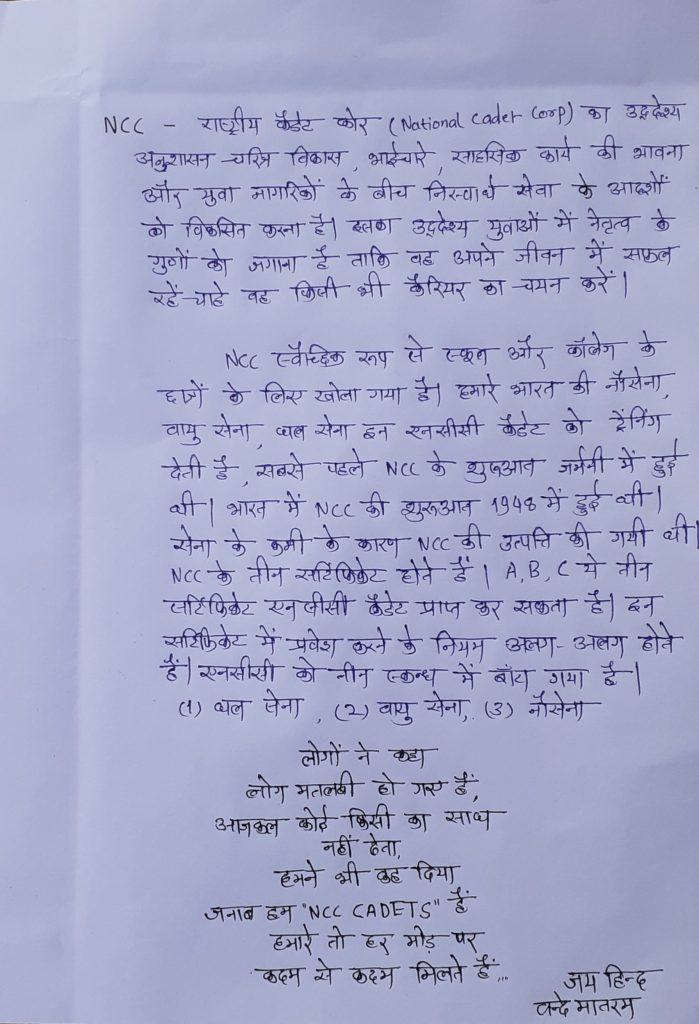 NCC - राष्ट्रीय कैडेट कोर (National Cadet Corp) का उद्देश्य
अनुशासन चरित्र विकास, भाईचारे, साहसिक कार्य की भावना
और युवा नागरिकों के बीच निस्वार्थ सेवा के आदर्शों
को विकसित करना है। इसका उद्देश्य युवाओं में नेतृत्व के
गुणों को जगाना है ताकि वह अपने जीवन में सफल
रहें चाहे वह किसी भी कैरियर का चयन करें।
NCC स्वैच्छिक रूप से स्कूल और कॉलेज के
छात्रों के लिए खोला गया है। हमारे भारत की नौसेना,
वायु सेना, थल सेना इन एनसीसी कैडेट को ट्रेनिंग
देती है, सबसे पहले NCC के शुरुआत जर्मनी में हुई
थी। भारत में NCC की शुरूआत 1948 में हुई थी।
सेना के कमी के कारण NCC की उत्पत्ति की गयी थी।
NCC के तीन सर्टिफिकेट होते हैं। A, B, C ये तीन
सर्टिफिकेट एनसीसी कैडेट प्राप्त कर सकता है। इन
सर्टिफिकेट में प्रवेश करने के नियम अलग-अलग होते
हैं। एनसीसी को तीन स्कन्ध में बाँटा गया है।
(1) थल सेना, (2) वायु सेना, (3) नौसेना
लोगों ने कहा
लोग मतलबी हो गए हैं,
आजकल कोई किसी का साथ
नहीं देता,
हमने भी कह दिया
जनाब हम "NCC CADETS" हैं
हमारे तो हर मोड़ पर
कदम से कदम मिलते हैं...
जय हिन्द
वन्दे मातरम